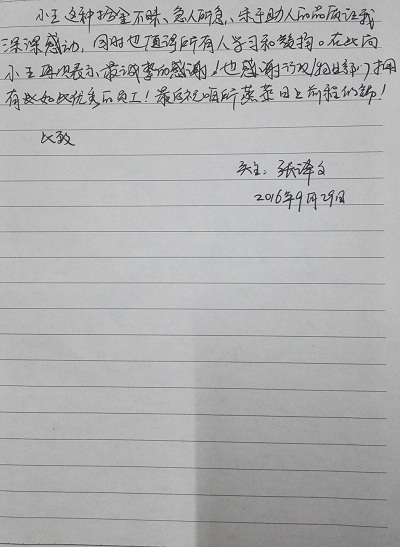 小王这种拾金不昧、急人所急、乐于助人的品质让我
深深感动,同时也值得所有人学习和颂扬。在此向
小王再次表示最诚挚的感谢!也感谢行政/物业部门拥
有此如此优秀的员工!最后祝咱所蒸蒸日上前程似锦!
此致
失主:张泽文
2016年9月29日